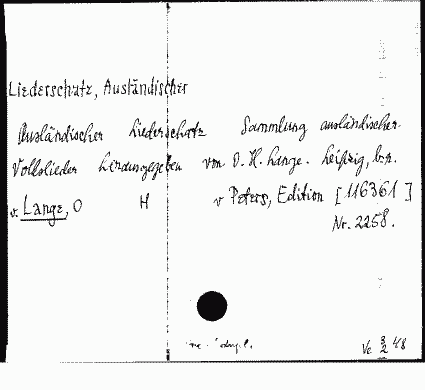 Liederschatz, Ausländischer
Ausländischer Liederschatz Sammlung ausländischer
Volkslieder herausgegeben von O. H. Lange. Leipzig, b. n.
v. Lange, O H v Peters, Edition [116361]
Nr. 2258.
Vc 3/2 48